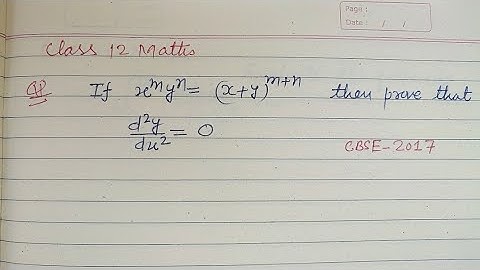 Page :
Date : / /
Class 12 Maths
Q. If xᵐyⁿ = (x+y)ᵐ⁺ⁿ then prove that
d²y/dx² = 0
CBSE-2017